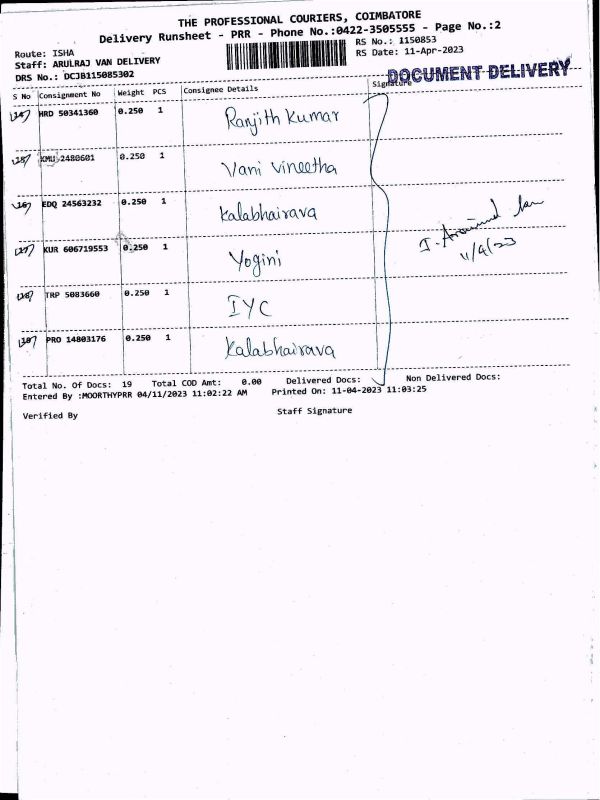 THE PROFESSIONAL COURIERS, COIMBATORE
Delivery Runsheet - PRR - Phone No.:0422-3505555 - Page No.:2
Route: ISHA
RS No.: 1150853
Staff: ARULRAJ VAN DELIVERY
RS Date: 11-Apr-2023
DRS No.: DCJB115085302
DOCUMENT DELIVERY
S No Consignment No Weight PCS Consignee Details Signature
14 HRD 50341360 0.250 1 Ranjith Kumar
15 KMU 2480601 0.250 1 Vani Vineetha
16 EDQ 24563232 0.250 1 Kalabhairava
11/4/23
17 KUR 606719553 0.250 1 Yogini
18 TRP 5083660 0.250 1 IYC
19 PRO 14803176 0.250 1 Kalabhairava
Total No. Of Docs: 19 Total COD Amt: 0.00 Delivered Docs: Non Delivered Docs:
Entered By :MOORTHYPRR 04/11/2023 11:02:22 AM Printed On: 11-04-2023 11:03:25
Verified By Staff Signature